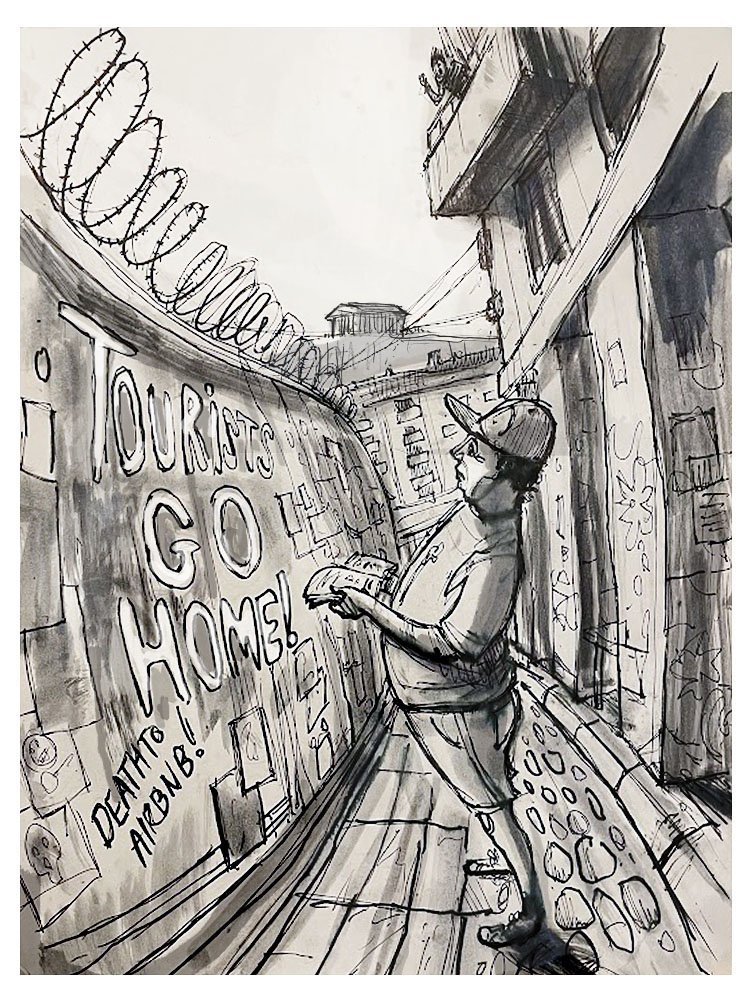 TOURISTS
GO
HOME!
DEATH TO
AIRBNB!